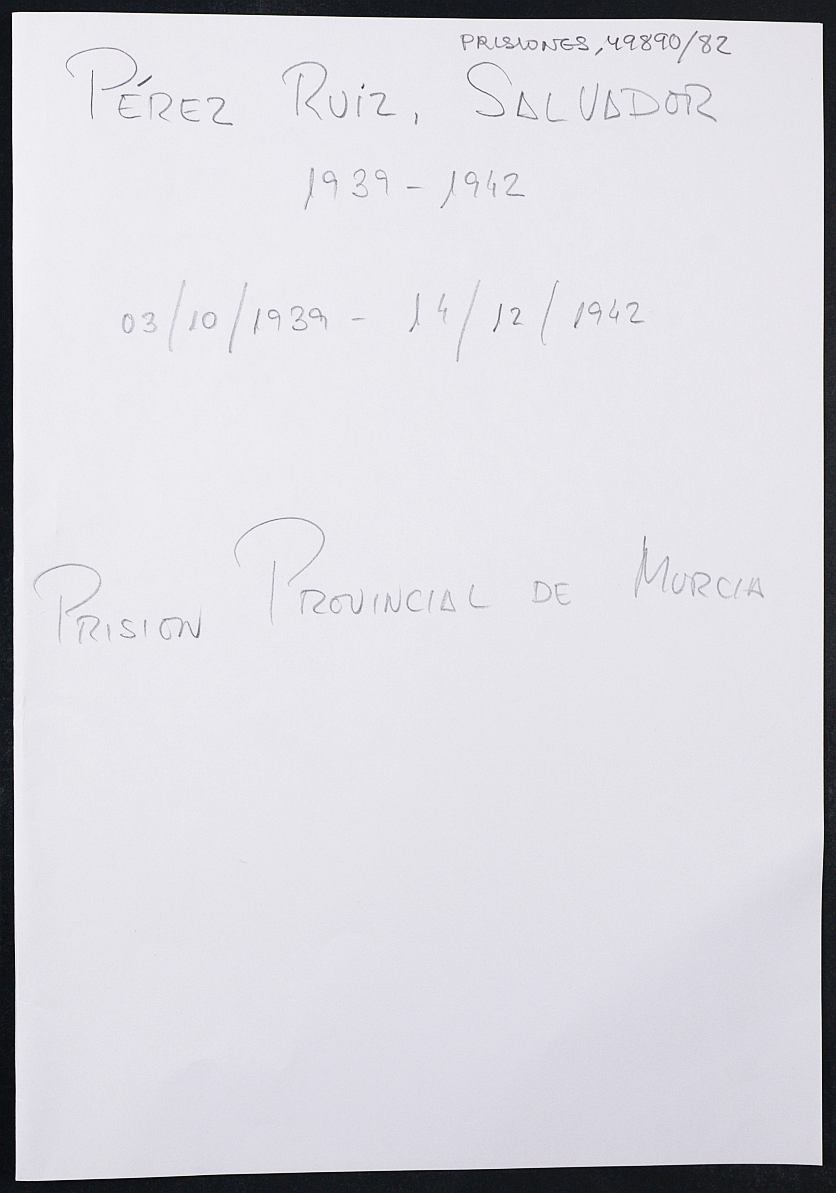 PRISIONES, 49890/82
PÉREZ RUIZ, SALVADOR
1939 - 1942
03/10/1939 - 14/12/1942
PRISION PROVINCIAL DE MURCIA